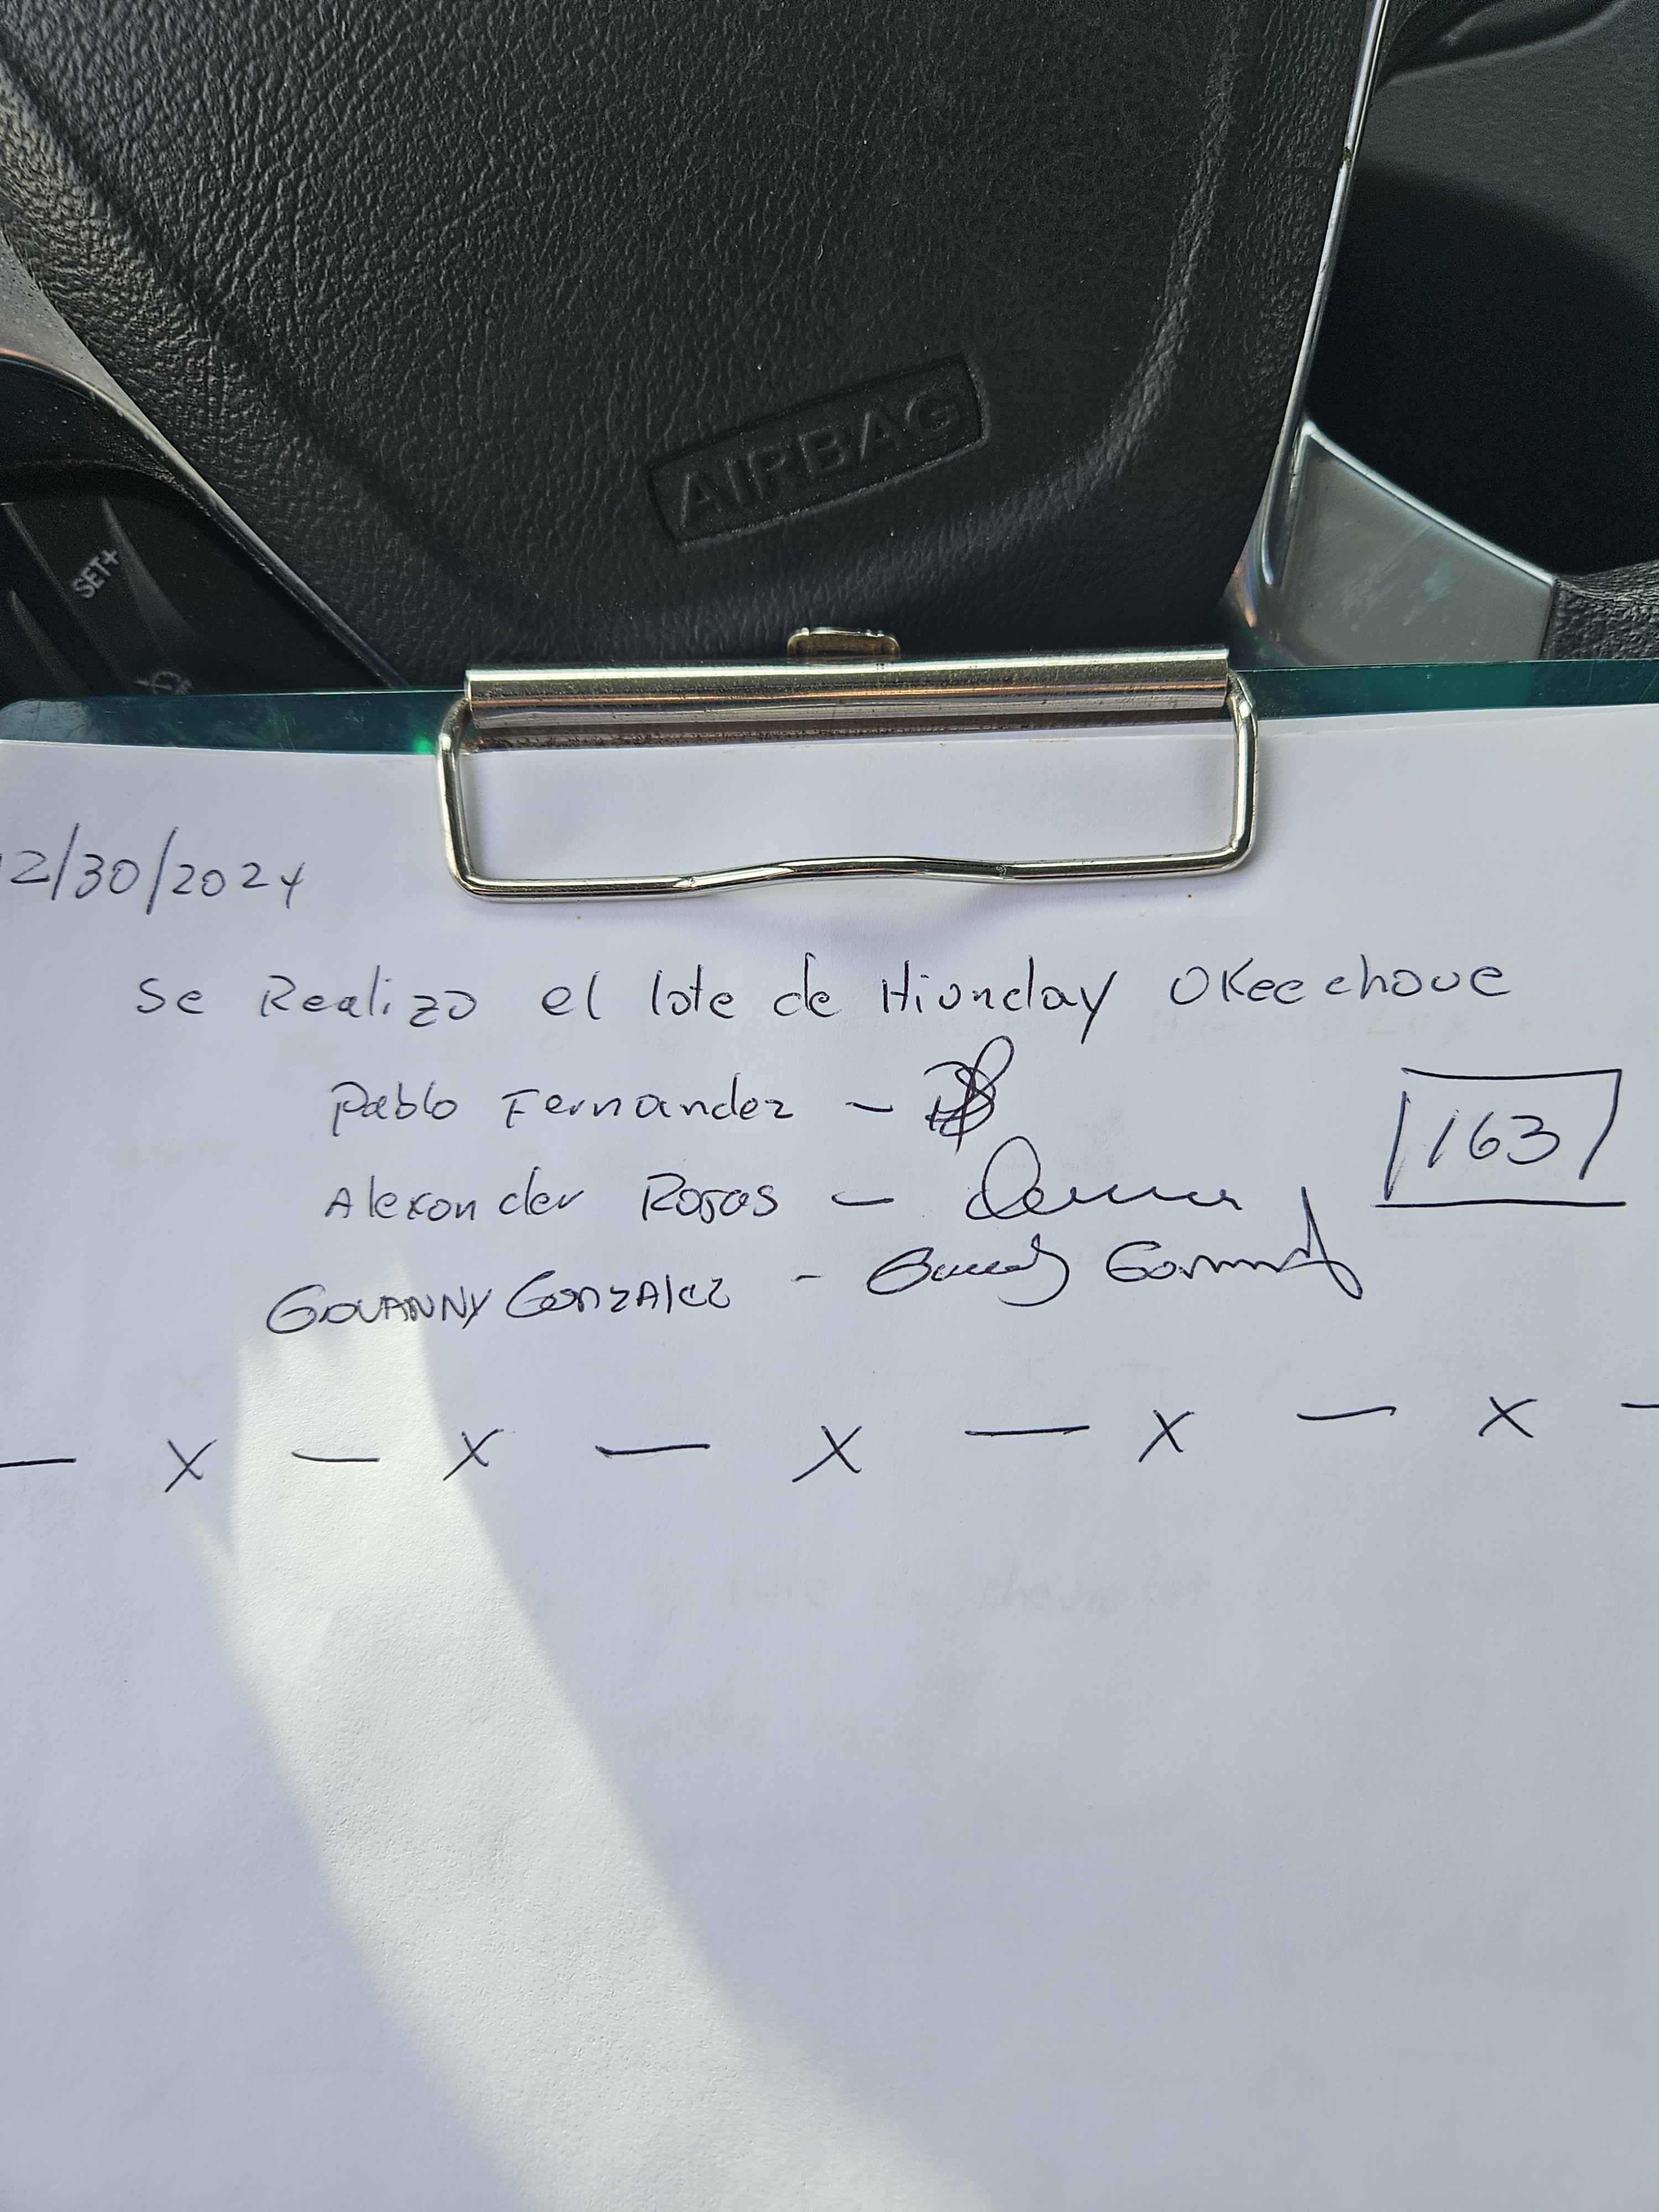 AIRBAG
SET+
12/30/2024
Se Realizo el lote de Hionday Okeechove
Pablo Fernandez -
163
Alexander Rojas -
Giovanny Gonzalez -
- X - X - X - X - X -